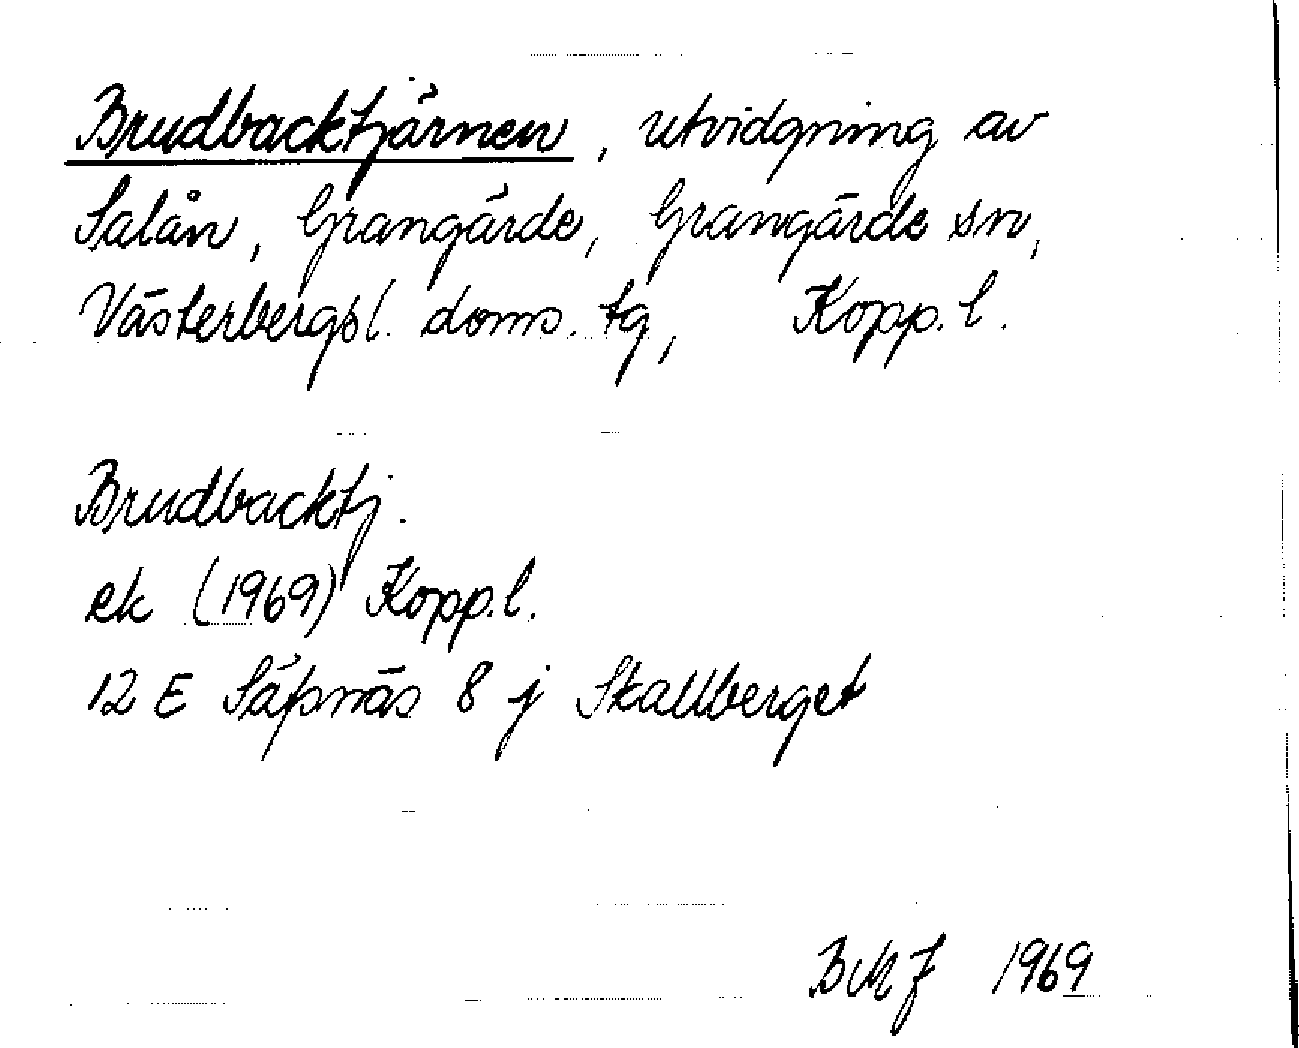 Brudbacktjärnen, utvidgning av
Salån, Grangärde, Grangärde sn,
Västerbergsl. doms. tg, Kopp. l.
Brudbacktj.
ek (1969) Kopp.l.
12 E Säfsnäs 8 j Skallberget
1969